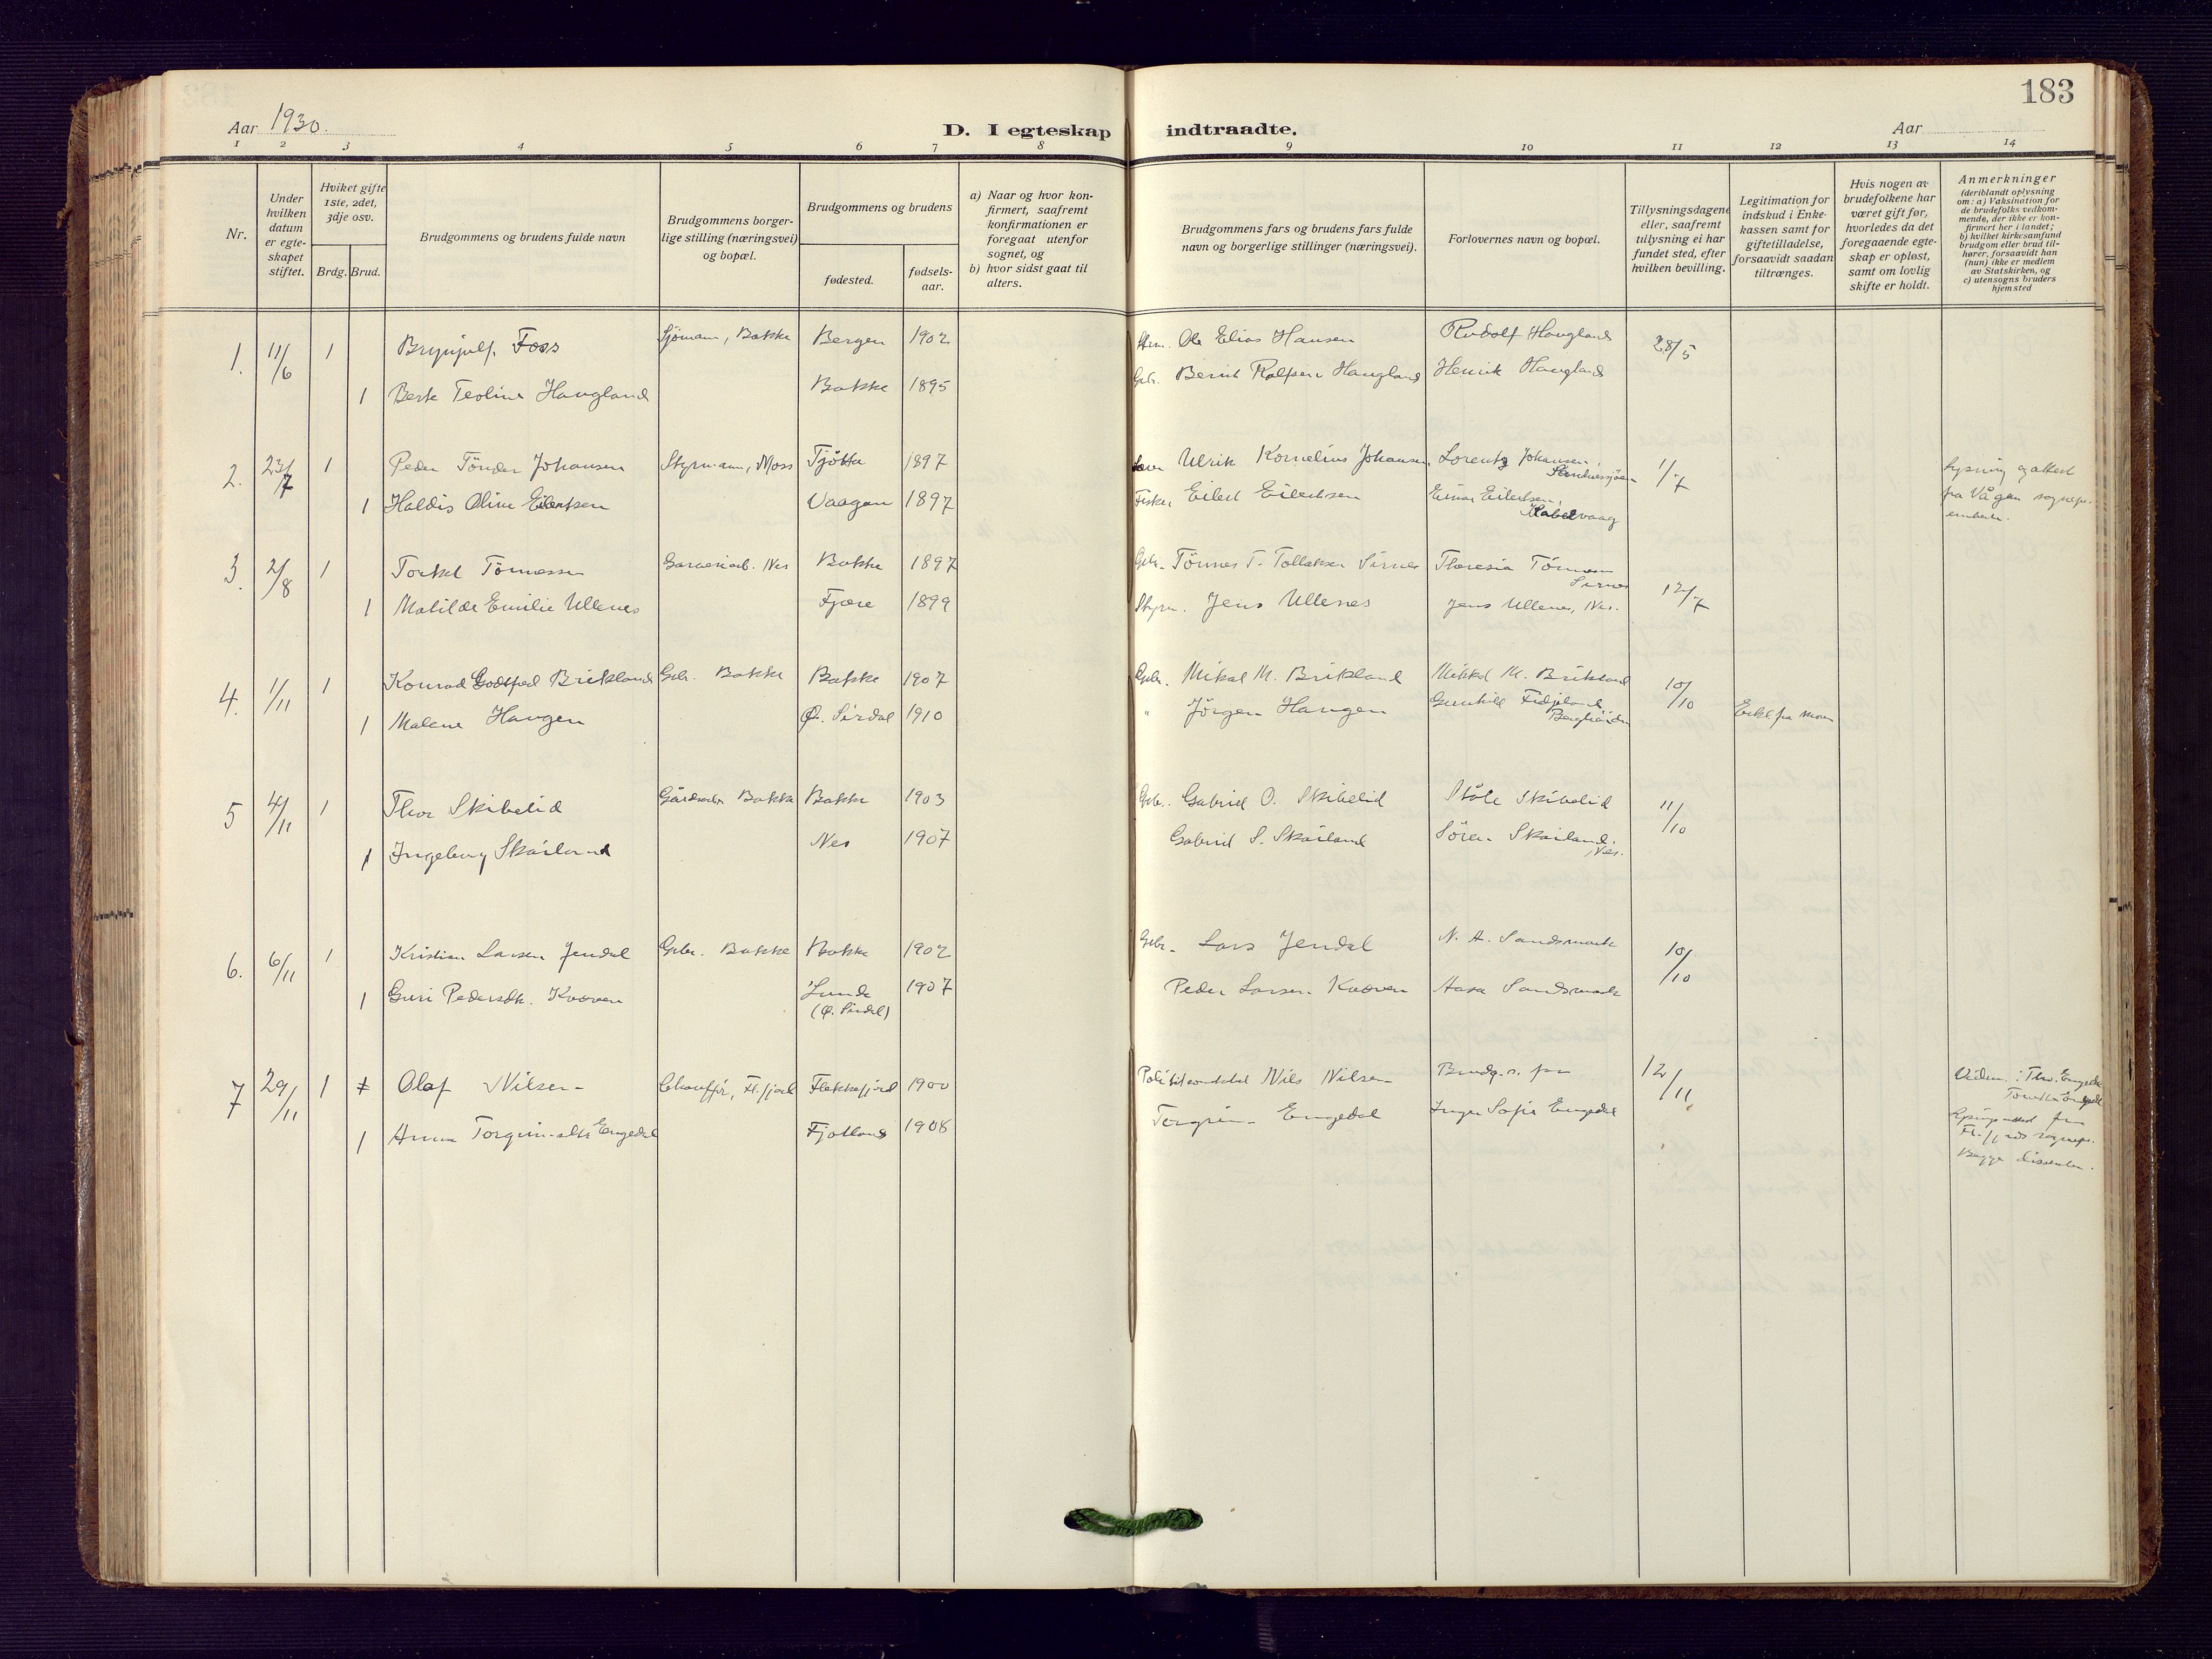 183
Aar 1930.
D. I egteskap indtraadte.
Aar
1 2 3 4 5 6 7 8 9 10 11 12 13 14
Nr.
Under hvilken datum er egteskapet stiftet.
Hviket gifte 1ste, 2det, 3dje osv.
Brdg. Brud.
Brudgommens og brudens fulde navn
Brudgommens borgerlige stilling (næringsvei) og bopæl.
Brudgommens og brudens
fødested.
fødselsaar.
a) Naar og hvor konfirmert, saafremt konfirmationen er foregaat utenfor sognet, og
b) hvor sidst gaat til alters.
Brudgommens fars og brudens fars fulde navn og borgerlige stillinger (næringsvei).
Forlovernes navn og bopæl.
Tillysningsdagene eller, saafremt tillysning ei har fundet sted, efter hvilken bevilling.
Legitimation for indskud i Enkekassen samt for giftetilladelse, forsaavidt saadan tiltrænges.
Hvis nogen av brudefolkene har været gift før, hvorledes da det foregaaende egteskap er opløst, samt om lovlig skifte er holdt.
Anmerkninger
(deriblandt oplysning om: a) Vaksination for de brudefolks vedkommende, der ikke er konfirmert her i landet; b) hvilket kirkesamfund brudgom eller brud tilhører, forsaavidt han (hun) ikke er medlem av Statskirken, og c) utensogns bruders hjemsted
1. 11/6 1 Brynjulf Foss Sjömann, Bakke Bergen 1902 Ole Elias Hansen Rudolf Haugland 28/5
1 Berte Teoline Haugland Bakke 1895 Gbr. Berint Rolfsen Haugland Henrik Haugland
2. 23/7 1 Peder Tönder Johansen Styrmann, Moss Tjötta 1897 Ulrik Kornelius Johansen Lorentz Johansen, Sandnessjöen 1/7 Lysning og attest
1 Haldis Oline Eilertsen Vaagan 1897 Fisker Eilert Eilertsen Einar Eilertsen, Kabelvaag fra Vågan sognepr.
embete.
3. 2/8 1 Torkel Tönnessen Garveriarb. Nes Bakke 1897 Gbr. Tönnes T. Tollaksen Sirnes Theresia Tönnessen Sirnes 12/7
1 Matilde Emilie Ullenes Fjære 1899 Styrm. Jens Ullenes Jens Ullenes, Nes.
4. 1/11 1 Konrad Godtfred Brikland Gbr. Bakke Bakke 1907 Gbr. Mikal M. Brikland Mikkel M. Brikland 10/10
1 Malene Haugen Ø. Sirdal 1910 " Jörgen Haugen Gunhild Fidjeland Erkl. fra Moren
5 4/11 1 Thor Skibelid Gårdsarb. Bakke Bakke 1903 Gbr. Gabriel O. Skibelid Ståle Skibelid 11/10
1 Ingeborg Skailand Nes 1907 Gabriel S. Skailand Sören Skailand. Nes.
6. 6/11 1 Kristian Larsen Jendal Gbr. Bakke Bakke 1902 Gbr. Lars Jendal N. A. Sandsmark 10/10
1 Guri Pedersdtr. Kvæven Lunde (Ø. Sirdal) 1907 Peder Larsen Kvæven Aasa Sandsmark
7 29/11 1 Olaf Nilsen Chauffør, Fl.fjord Flekkefjord 1900 Nils Nilsen Brudg.s. far 12/11
1 Anna Torgrimsdtr Engedal Fjotland 1908 Torgrim Engedal Inger Sofie Engedal
Fl.fjords sognepr.
Begge dissentere.